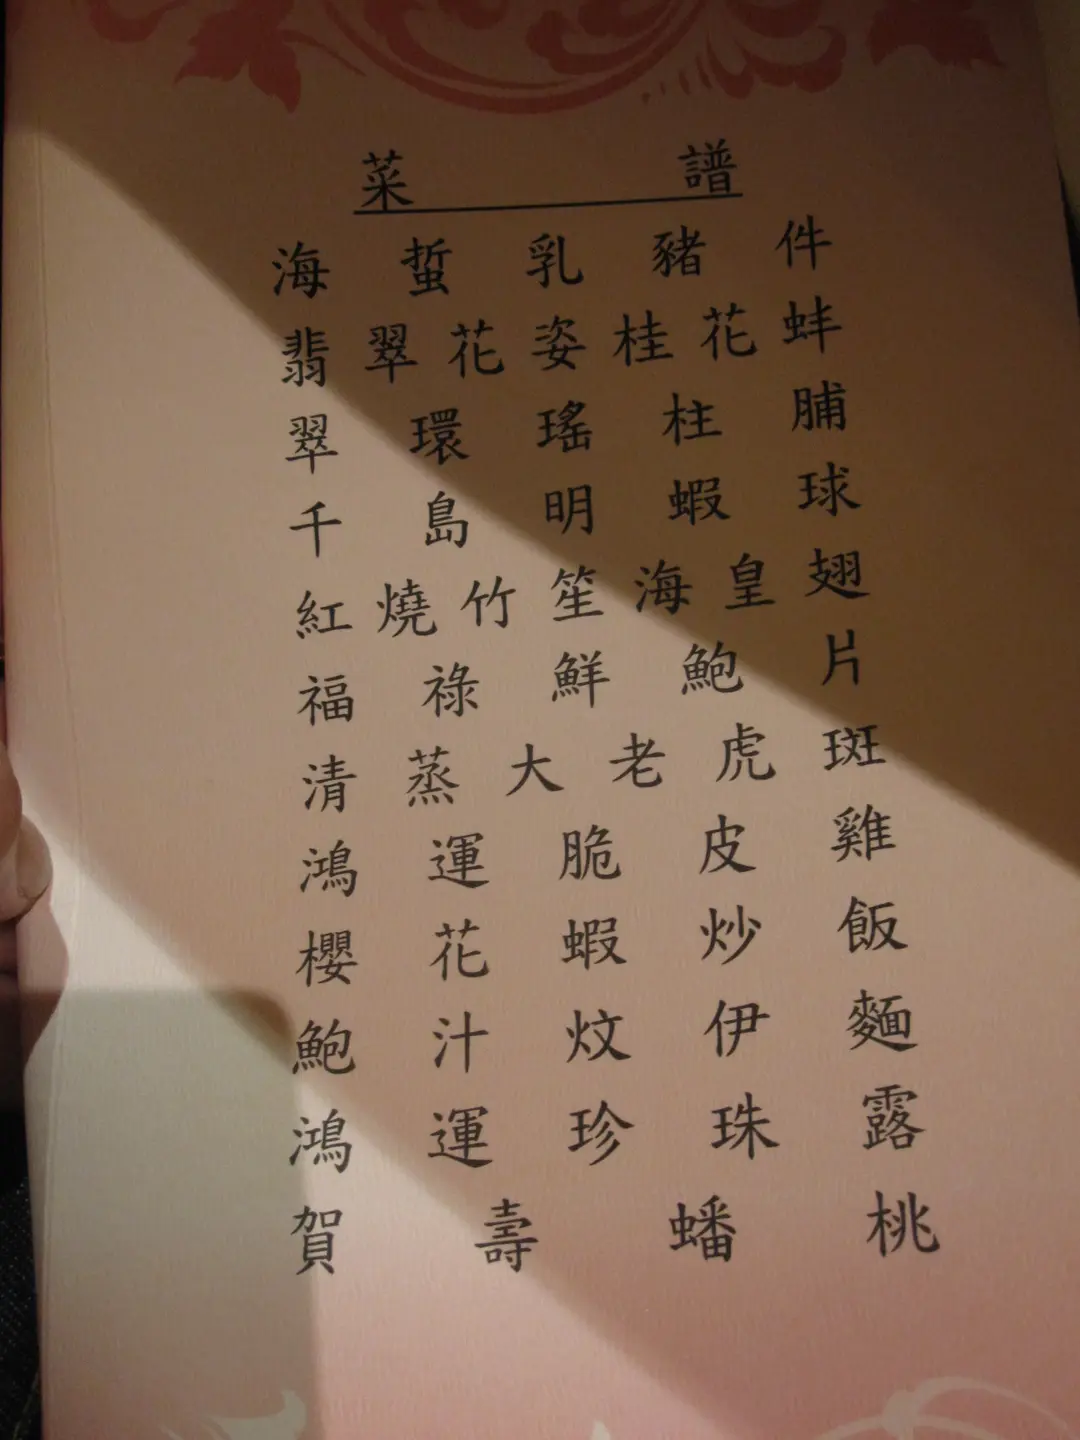 菜譜
海蜇乳豬件
翡翠花姿桂花蚌
翠環瑤柱脯
千島明蝦球
紅燒竹笙海皇翅
福祿鮮鮑片
清蒸大老虎斑
鴻運脆皮雞
櫻花蝦炒飯
鮑汁炆伊麵
鴻運珍珠露
賀壽蟠桃